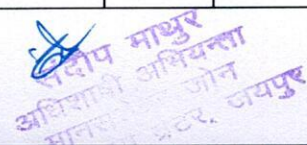 संदीप माथुर
अधिशाषी अभियन्ता
जोन
ग्रेटर, जयपुर